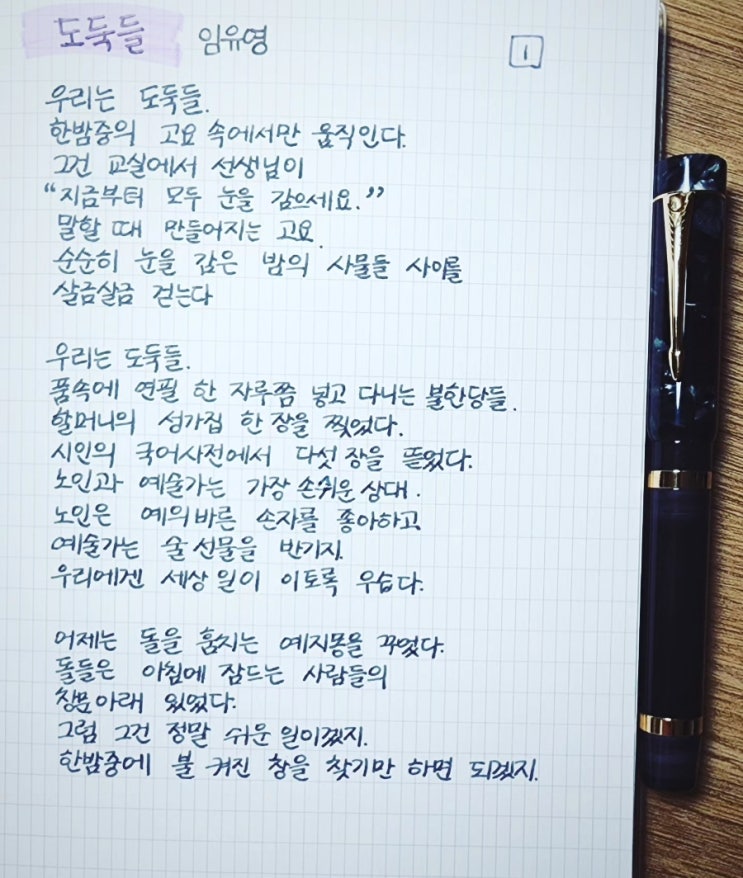 도둑들 임유영
1
우리는 도둑들.
한밤중의 고요 속에서만 움직인다.
그건 교실에서 선생님이
“지금부터 모두 눈을 감으세요.”
말할 때 만들어지는 고요.
순순히 눈을 감은 밤의 사물들 사이를
살금살금 걷는다
우리는 도둑들.
품속에 연필 한 자루쯤 넣고 다니는 불한당들.
할머니의 성가집 한 장을 찢었다.
시인의 국어사전에서 다섯 장을 뜯었다.
노인과 예술가는 가장 손쉬운 상대.
노인은 예의바른 손자를 좋아하고
예술가는 술 선물을 반기지.
우리에겐 세상 일이 이토록 우습다.
어제는 돌을 훔치는 예지몽을 꾸었다.
돌들은 아침에 잠드는 사람들의
창문아래 있었다.
그럼 그건 정말 쉬운 일이겠지.
한밤중에 불 켜진 창을 찾기만 하면 되겠지.